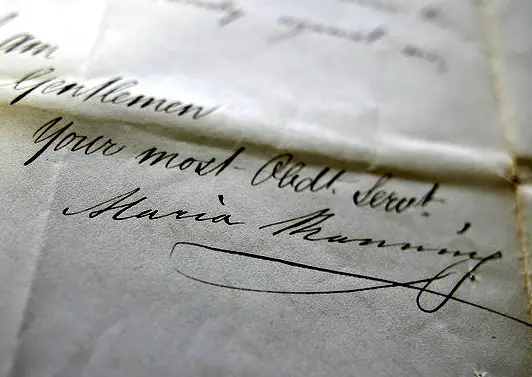 I am
Gentlemen
Your most Obdt. Servt.
Maria Manning